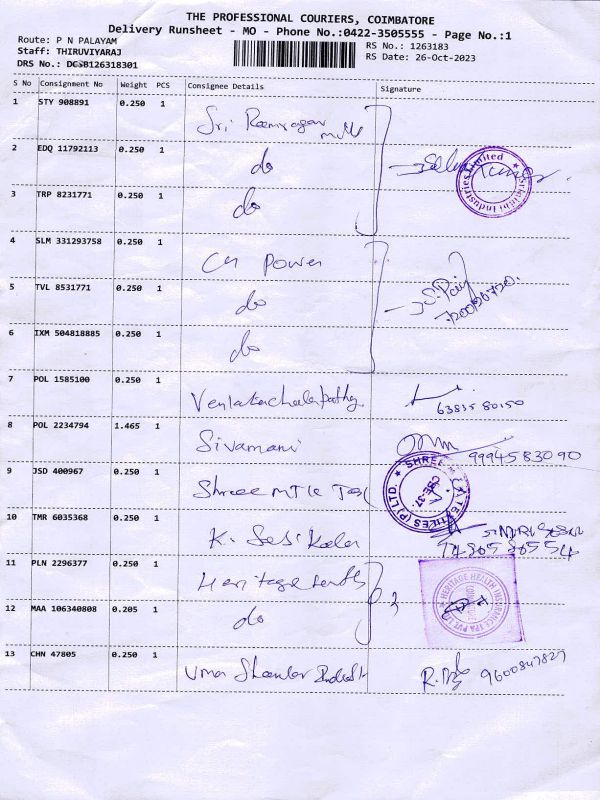 THE PROFESSIONAL COURIERS, COIMBATORE
Delivery Runsheet - MO - Phone No.:0422-3505555 - Page No.:1
Route: P N PALAYAM
Staff: THIRUVIYARAJ
DRS No.: DCSB126318301
RS No.: 1263183
RS Date: 26-Oct-2023
S No Consignment No Weight PCS Consignee Details Signature
1 STY 908891 0.250 1 Sri
2 EDQ 11792113 0.250 1 do
3 TRP 8231771 0.250 1 do
Industries Limited
4 SLM 331293758 0.250 1 Power
5 TVL 8531771 0.250 1 do
6 IXM 504818885 0.250 1 do
7 POL 1585100 0.250 1 Venkatachalapathy
63835 80150
8 POL 2234794 1.465 1 Sivamani
99945 83090
9 JSD 400967 0.250 1 Shree
TEXTILES (P) LTD.
10 TMR 6035368 0.250 1 K. Sasi Kala
11 PLN 2296377 0.250 1 Heritage
HERITAGE HEALTH INSURANCE TPA PVT LTD
12 MAA 106340808 0.205 1 do
13 CHN 47805 0.250 1 Uma Shankar
9600847827